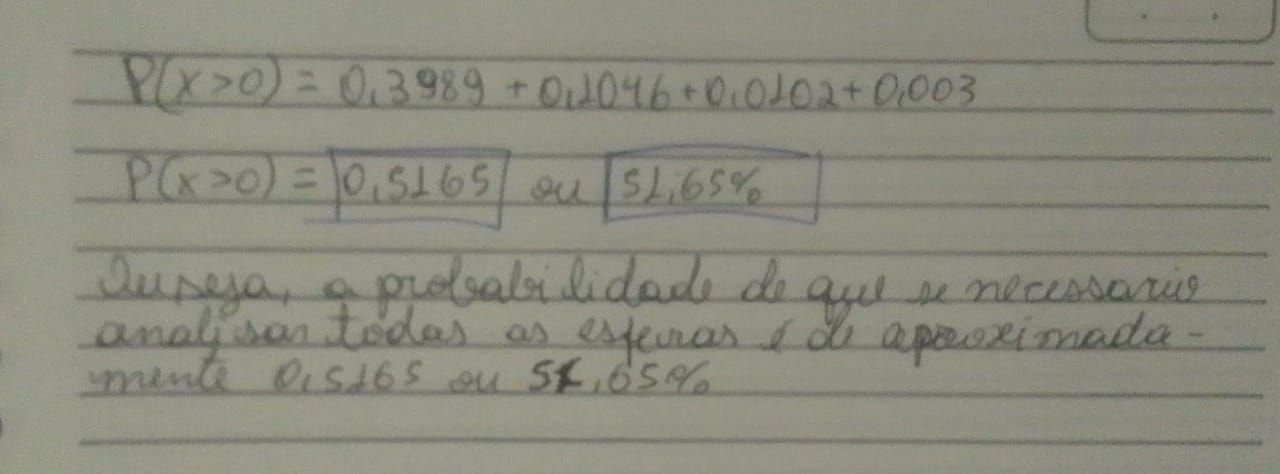 P(x>0) = 0,3989 + 0,1046 + 0,0102 + 0,003
P(x>0) = 0,5165 ou 51,65%
Ou seja, a probabilidade de que se necessario
analisar todas as esferas é de aproximada-
mente 0,5165 ou 51,65%